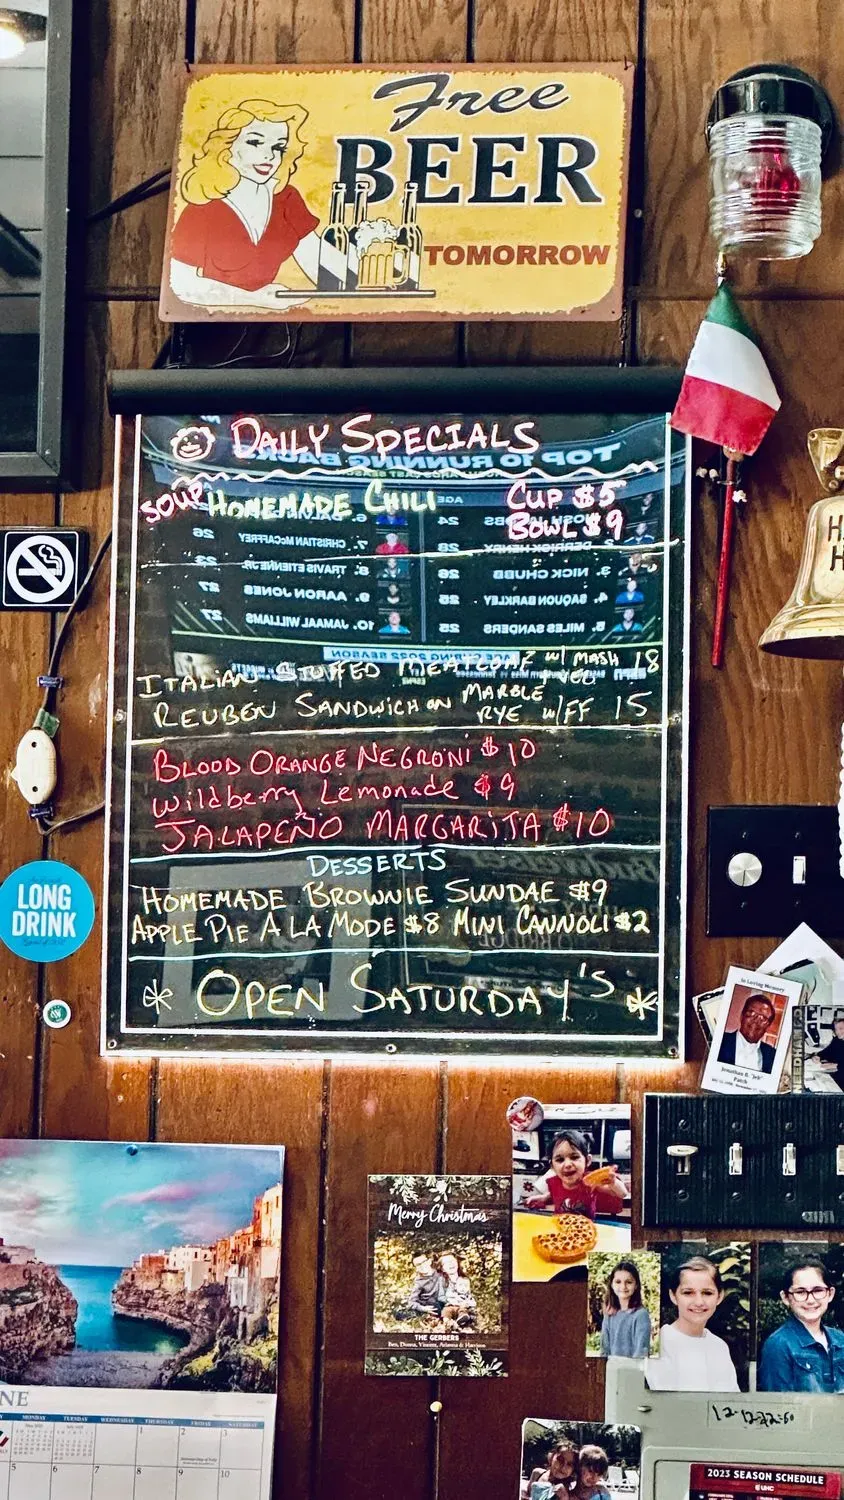 Free
BEER
TOMORROW
DAILY SPECIALS
SOUP HOMEMADE CHILI CUP $5
BOWL $9
TOP 10 RUNNING BACKS
AGE
CHRISTIAN McCAFFREY 26
7.
DERRICK HENRY 28
8. TRAVIS ETIENNE JR. 23
3. NICK CHUBB 26
9. AARON JONES 27
4. SAQUON BARKLEY 25
10. JAMAAL WILLIAMS 27
5. MILES SANDERS 25
AGE DURING 2022 SEASON
ESPN
ITALIAN STUFFED MEATLOAF w/ MASH 18
REUBEN SANDWICH ON MARBLE
RYE w/FF 15
BLOOD ORANGE NEGRONI $10
Wildberry Lemonade $9
JALAPEÑO MARGARITA $10
DESSERTS
HOMEMADE BROWNIE SUNDAE $9
APPLE PIE A LA MODE $8 MINI CANNOLI $2
* OPEN SATURDAY'S *
LONG
DRINK
In Loving Memory
Jonathan B. "Jeb"
Patch
Merry Christmas
THE GERBERS
Ben, Donna, Vincent, Arianna & Harrison
NE
MONDAY TUESDAY WEDNESDAY THURSDAY FRIDAY SATURDAY
1 2 3
5 6 7 8 9 10
12-12-22-60
2023 SEASON SCHEDULE
UHC